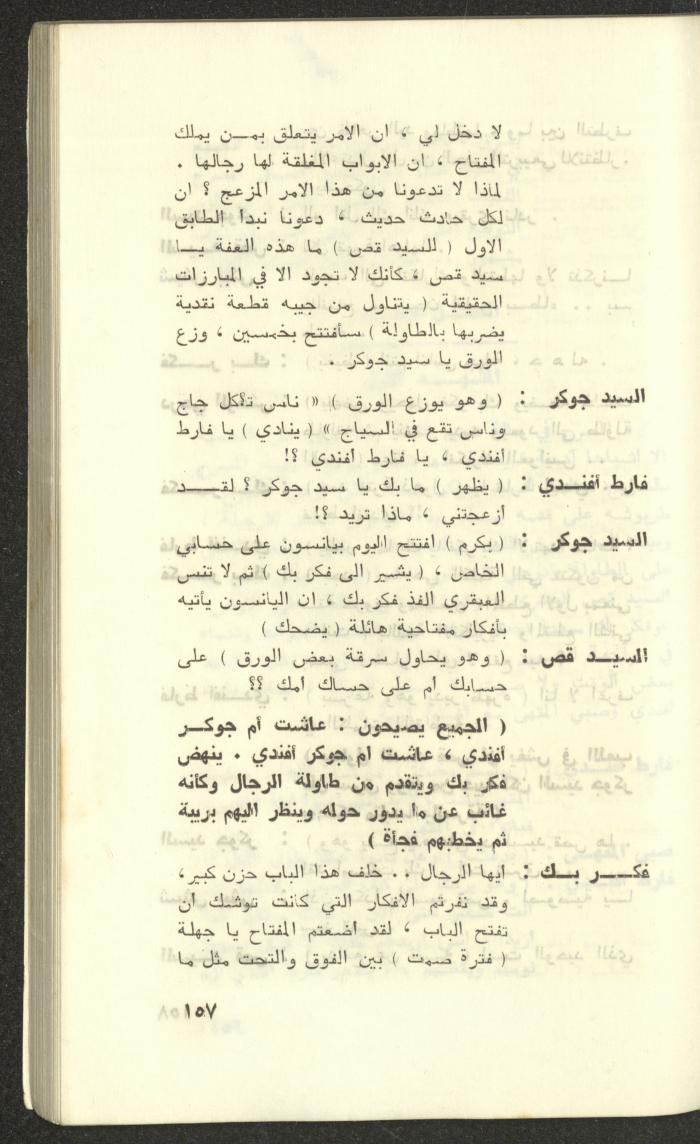 لا دخل لي ، ان الامر يتعلق بمـــن يملك
المفتاح ، ان الابواب المغلقة لها رجالها .
لماذا لا تدعونا من هذا الامر المزعج ؟ ان
لكل حادث حديث ، دعونا نبدأ الطابق
الاول ( للسيد قص ) ما هذه العفة يـــا
سيد قص ، كأنك لا تجود الا في المبارزات
الحقيقية ( يتناول من جيبه قطعة نقدية
يضربها بالطاولة ) سأفتتح بخمسين ، وزع
الورق يا سيد جوكر .
السيد جوكر : ( وهو يوزع الورق ) « ناس تأكل جاج
وناس تقع في السياج » ( ينادي ) يا فارط
أفندي ، يا فارط أفندي ؟!
فارط أفنــدي : ( يظهر ) ما بك يا سيد جوكر ؟ لقـــد
ازعجتني ، ماذا تريد ؟!
السيد جوكر : ( بكرم ) افتتح اليوم بيانسون على حسابي
الخاص ، ( يشير الى فكر بك ) ثم لا تنس
العبقري الفذ فكر بك ، ان اليانسون يأتيه
بأفكار مفتاحية هائلة ( يضحك )
السيــد قص : ( وهو يحاول سرقة بعض الورق ) على
حسابك ام على حساك امك ؟؟
( الجميع يصيحون : عاشت أم جوكــر
أفندي ، عاشت ام جوكر أفندي . ينهض
فكر بك ويتقدم من طاولة الرجال وكأنه
غائب عن ما يدور حوله وينظر اليهم بريبة
ثم يخطبهم فجأة )
فكـــر بــك : ايها الرجال .. خلف هذا الباب حزن كبير،
وقد نفرتم الافكار التي كانت توشك ان
تفتح الباب ، لقد اضعتم المفتاح يا جهلة
( فترة صمت ) بين الفوق والتحت مثل ما
١٥٧